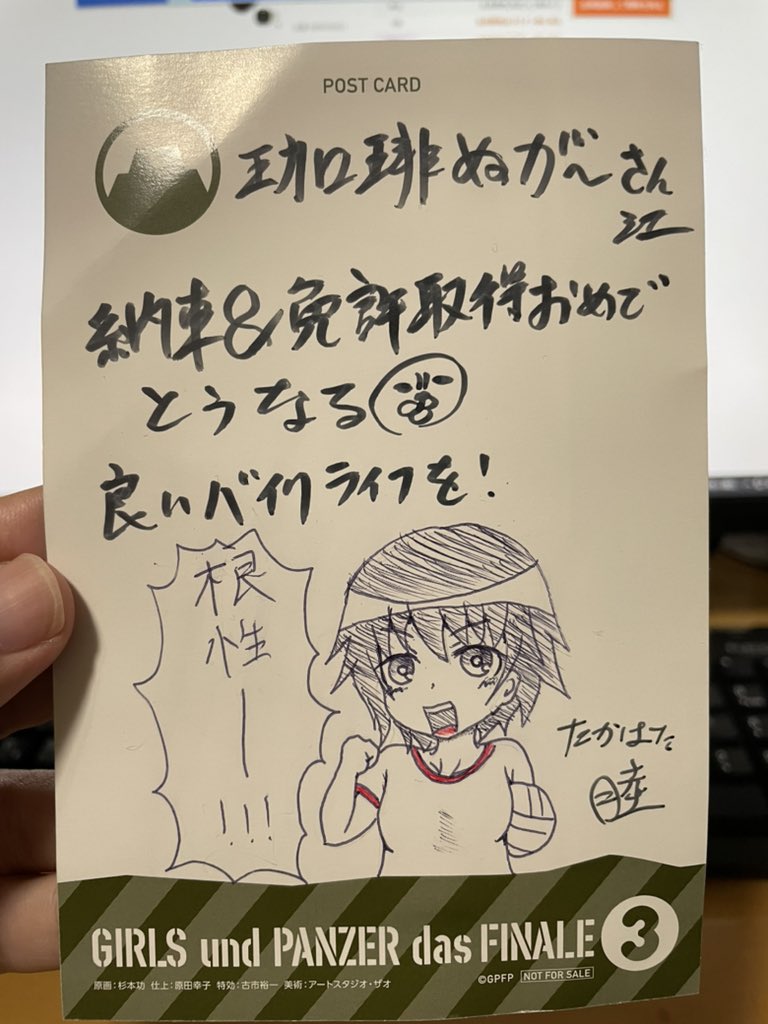 POST CARD
珈琲ぬがーさん
江
納車&免許取得おめで
とうなる
良いバイクライフを!
根性ー!!!
たかはた
睦
GIRLS und PANZER das FINALE 3
©GPFP NOT FOR SALE
原画:杉本功 仕上:原田幸子 特効:古市裕一 美術:アートスタジオ・ザオ